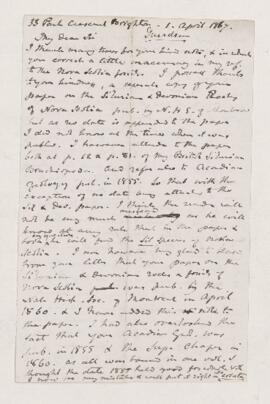 33 Park Crescent Brighton - 1. April 1867.
My Dear Sir
I thank many times for your kind note, & in which
you correct a little inaccuracy in my ref.
to the Nova Scotia fossils. I possess thanks
to your kindness, a separate copy of your
paper on the Silurian & Devonian Rocks
of Nova Scotia pub. in N. H. S. of Montreal
but as no date is appended to the paper
I did not know at the time when it was
publis. I have however alluded to the paper
both at p. 62 & p. 81. of my British Silurian
Brachiopoda. And refer also to Acadian
Geology pub. in 1855. So that with the
exception of no date being attached to the
Sil & Dev. paper. I think the reader will
not be very much as he will
know at any rate that in the paper &
book he will find the Sil species of Nova
Scotia. I am however very glad to learn
from your letter that your paper on the
Silurian & Devonian rocks & fossils of
Nova Scotia was pub. by the
Nat. Hist. Soc. of Montreal in April
1860. & I have added this note to
the paper. I had also overlooked the
fact that your Acadian Geol. was
pub. in 1855 & the Supp. Chapter in
1860. as all was bound in one vol. I
thought the date 1855 held good for whole vol.
I now see my mistake & will put it right